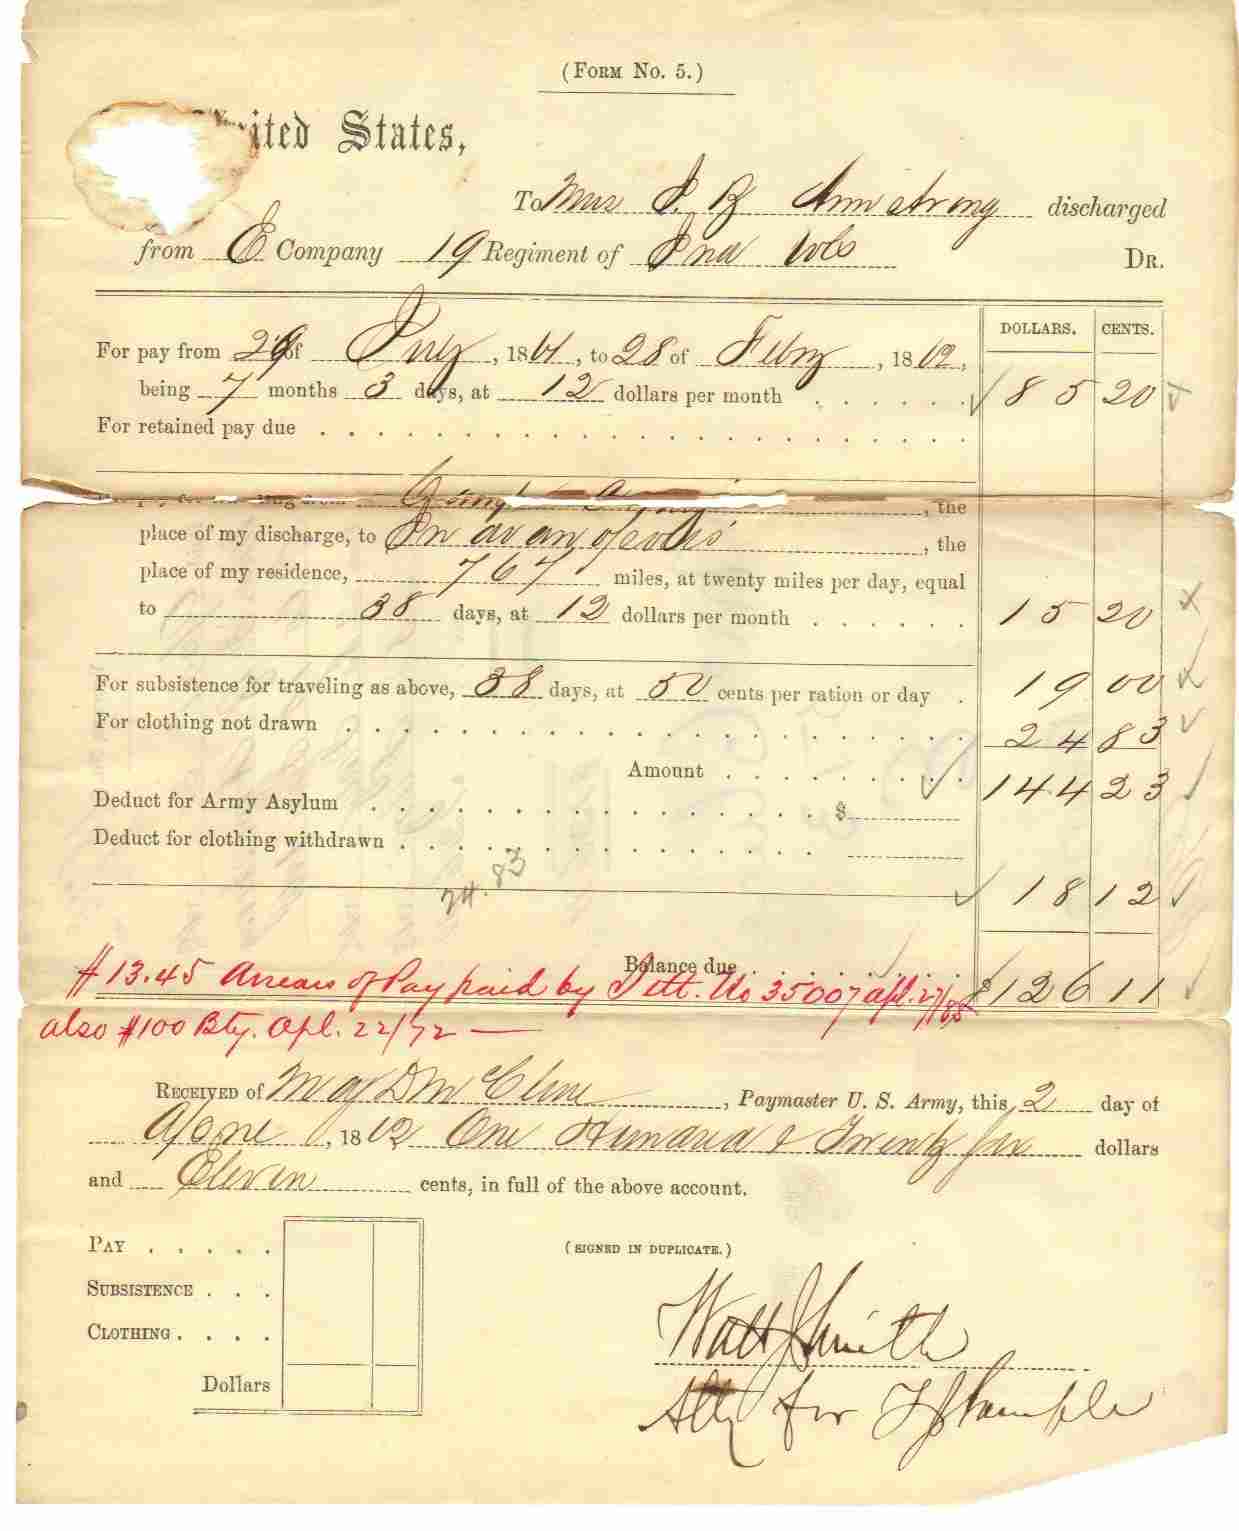 (FORM No. 5.)
United States,
To Mrs J. B Armstrong discharged
from E Company 19 Regiment of Ind Vols DR.
DOLLARS. CENTS.
For pay from 29 of July, 1861, to 28 of Febry, 1862,
being 7 months 3 days, at 12 dollars per month 85 20
For retained pay due
Camp, the
place of my discharge, to Indianapolis, the
place of my residence, 767 miles, at twenty miles per day, equal
to 38 days, at 12 dollars per month 15 20
For subsistence for traveling as above, 38 days, at 50 cents per ration or day 19 00
For clothing not drawn 24 83
Amount 144 23
Deduct for Army Asylum $
Deduct for clothing withdrawn
24.83
18 12
Balance due $126 11
$13.45 Arrears of Pay paid by Sett. No 35007 Apl. 27/85
also $100 Bty. Apl. 22/72
RECEIVED of Maj D McClure, Paymaster U. S. Army, this 2 day of
, 1862 One Hundred & Twenty Six dollars
and Eleven cents, in full of the above account.
PAY
SUBSISTENCE
CLOTHING
Dollars
(SIGNED IN DUPLICATE.)
Watt J Smith
Atty for T J Sample